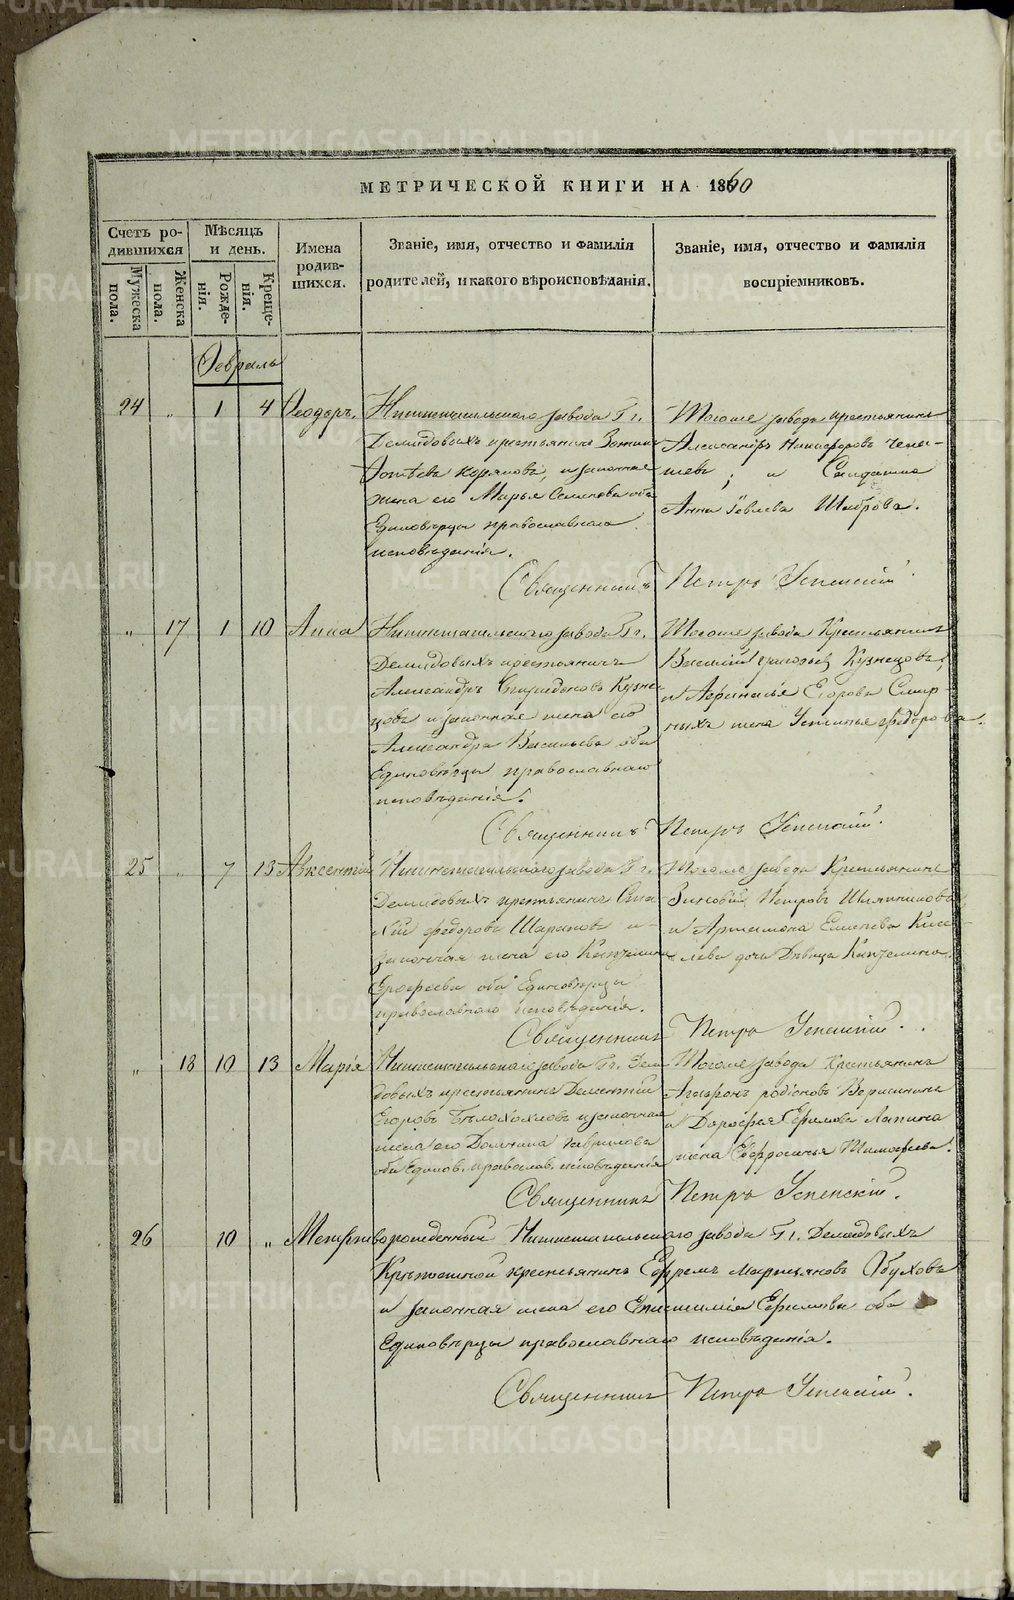 МЕТРИЧЕСКОЙ КНИГИ НА 1860
Счетъ ро-
дившихся
Мѣсяцъ
и день.
Имена
родив-
шихся.
Званіе, имя, отчество и фамилія
родителей, и какого вѣроисповѣданія.
Званіе, имя, отчество и фамилія
воспріемниковъ.
Мужеска
пола.
Женска
пола.
Рожде-
нія.
Креще-
нія.
Февраль
24 „ 1 4 Ѳеодоръ.
Нижнетагильскаго завода Гг.
Демидовыхъ крестьянинъ
и законная
жена его Марья Семенова оба
Единовѣрцы православнаго
исповѣданія.
Тогоже завода крестьянинъ
Александръ Никифоровъ
; и Солдатка
Анна Іевлева
Священникъ Петръ Успенскій.
„ 17 1 10 Анна
Нижнетагильскаго завода Гг.
Демидовыхъ крестьянинъ
Александръ Спиридоновъ Кузне-
цовъ и законная жена его
Александра Васильева оба
Единовѣрцы православнаго
исповѣданія.
Тогоже завода Крестьянинъ
Василій Григорьевъ Кузнецовъ,
и Афанасья Егорова Смир-
ныхъ жена Устинья Федорова.
Священникъ Петръ Успенскій.
25 „ 7 13 Авксентій
Нижнетагильскаго завода Гг.
Демидовыхъ крестьянинъ
Федоровъ Шараповъ и
законная жена его
Ерофеева оба Единовѣрцы
православнаго исповѣданія.
Тогоже завода Крестьянинъ
Зиновій Петровъ
и Артамона Кисе-
лева дочь Дѣвица
Священникъ Петръ Успенскій.
„ 18 10 13 Марія
Нижнетагильскаго завода Гг. Деми-
довыхъ крестьянинъ Дементій
Егоровъ Бѣлохохловъ и законная
жена его Домника Гаврилова
оба Единов. православ. исповѣданія
Тогоже завода Крестьянинъ
Агафонъ Родіоновъ
и Дорофея Ефимова Лапина
жена Евфросинья Тимофеева.
Священникъ Петръ Успенскій.
26 10 „ Мертворожденный Нижнетагильскаго завода Гг. Демидовыхъ
крестьянинъ Ефремъ Обуховъ
и законная жена его Ефимова оба
Единовѣрцы православнаго исповѣданія.
Священникъ Петръ Успенскій.
METRIKI.GASO-URAL.RU